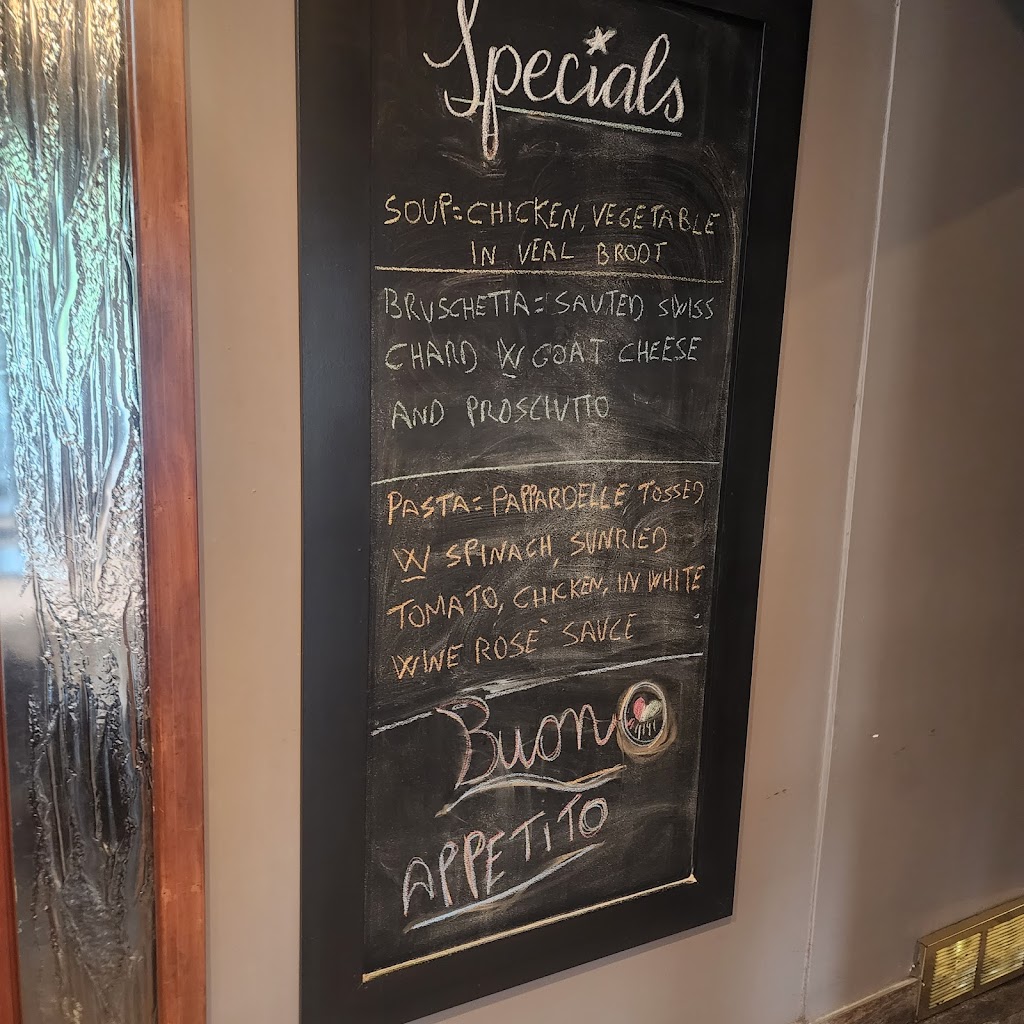 Specials
SOUP=CHICKEN, VEGETABLE
IN VEAL BROOT
BRUSCHETTA= SAUTED SWISS
CHARD W GOAT CHEESE
AND PROSCIUTTO
PASTA= PAPPARDELLE, TOSSED
W SPINACH, SUNRIED
TOMATO, CHICKEN, IN WHITE
WINE ROSE` SAUCE
Buon
APPETITO